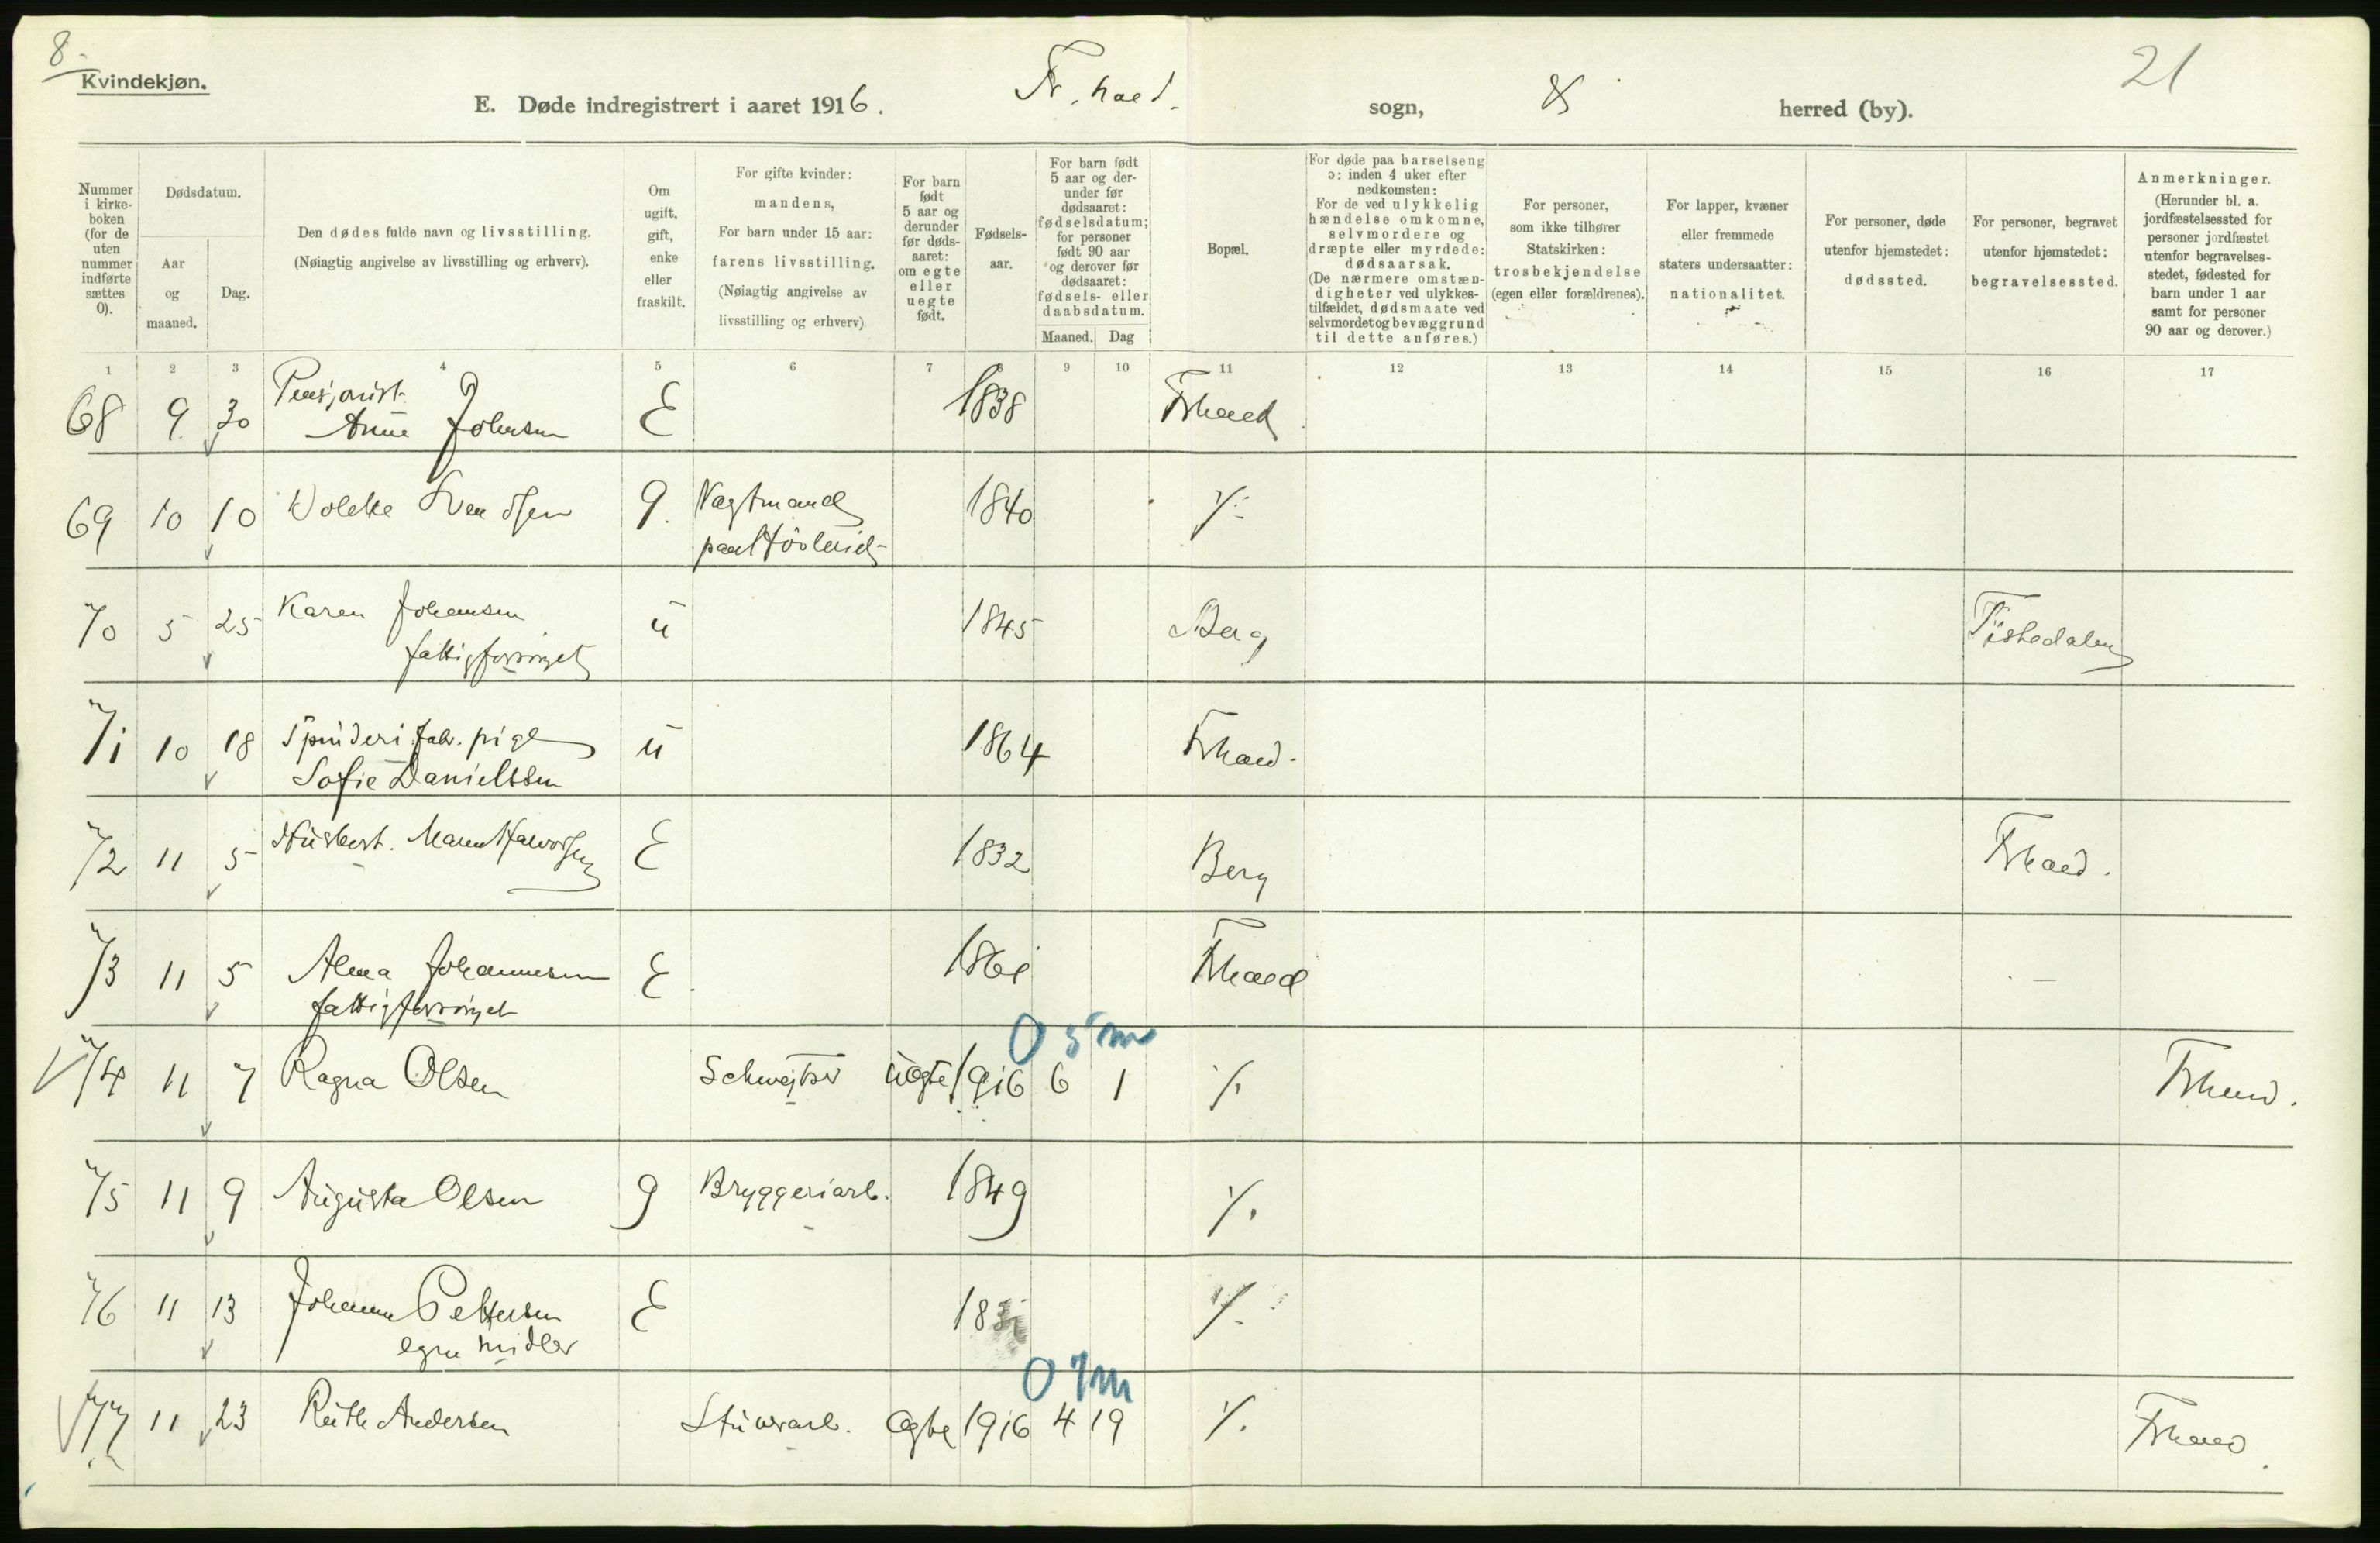 8.
Kvindekjøn.
E. Døde indregistrert i aaret 1916.
Fr.hald. sogn,
herred (by).
21
Nummer i kirkeboken (for de uten nummer indførte sættes 0).
Dødsdatum.
Aar og maaned.
Dag.
Den dødes fulde navn og livsstilling.
(Nøiagtig angivelse av livsstilling og erhverv).
Om ugift, gift, enke eller fraskilt.
For gifte kvinder: mandens,
For barn under 15 aar: farens livsstilling.
(Nøiagtig angivelse av livsstilling og erhverv)
For barn født 5 aar og derunder før dødsaaret: om egte eller uegte født.
Fødselsaar.
For barn født 5 aar og derunder før dødsaaret: fødselsdatum; for personer født 90 aar og derover før dødsaaret: fødsels- eller daabsdatum.
Maaned. Dag
Bopæl.
For døde paa barselseng ɔ: inden 4 uker efter nedkomsten:
For de ved ulykkelig hændelse omkomne, selvmordere og dræpte eller myrdede: dødsaarsak.
(De nærmere omstændigheter ved ulykkestilfældet, dødsmaate ved selvmordet og bevæggrund til dette anføres.)
For personer, som ikke tilhører Statskirken: trosbekjendelse (egen eller forældrenes).
For lapper, kvæner eller fremmede staters undersaatter: nationalitet.
For personer, døde utenfor hjemstedet: dødssted.
For personer, begravet utenfor hjemstedet: begravelsessted.
Anmerkninger.
(Herunder bl. a. jordfæstelsessted for personer jordfæstet utenfor begravelsesstedet, fødested for barn under 1 aar samt for personer 90 aar og derover.)
1 2 3 4 5 6 7 8 9 10 11 12 13 14 15 16 17
68 9 30 Pensjonist Anne Johansen E 1838 Frhald
69 10 10 Svendsen g. Vagtmand paa 1840 ./.
70 5 25 Karen Johansen fattigforsörget u 1845 Berg Tistedalen
71 10 18 Spinderi fabr. pige Sofie Danielssen u 1864 Frhald.
72 11 5 Husbest. Maren Halvorsen E 1832 Berg Frhald.
73 11 5 Alma Johannesen fattigforsörget E 1861 Frhald —
0 5 m
74 11 7 Ragna Olsen Schweitser uegte 1916 6 1 ./. Frhald.
75 11 9 Augusta Olsen g Bryggeriarb. 1849 ./.
76 11 13 Johanne Pettersen egne midler E ./.
0 7m
77 11 23 Ruth Andersen Stuerarb. egte 1916 4 19 ./. Frhald.